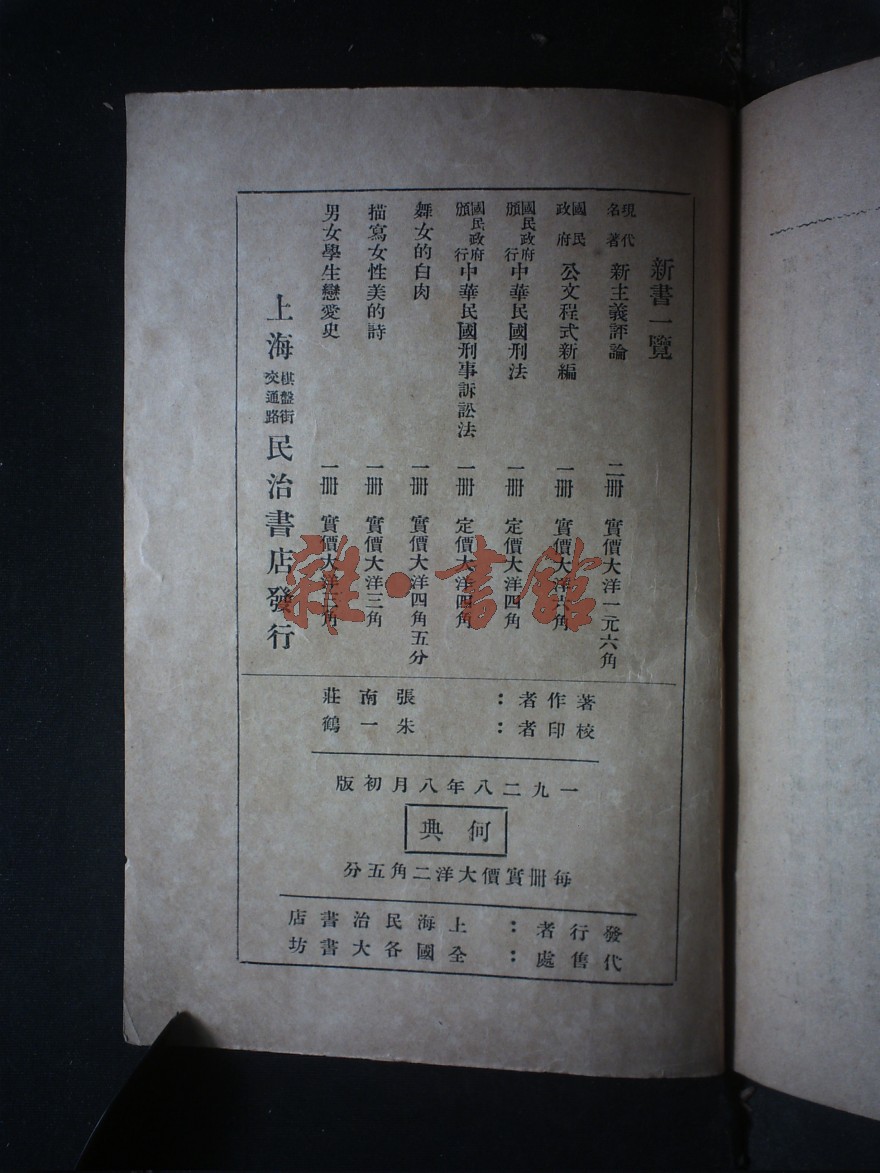 新書一覽
現代名著 新主義評論 二冊 實價大洋一元六角
國民政府 公文程式新編 一冊 實價大洋六角
國民政府頒行 中華民國刑法 一冊 定價大洋四角
國民政府頒行 中華民國刑事訴訟法 一冊 定價大洋四角
舞女的白肉 一冊 實價大洋四角五分
描寫女性美的詩 一冊 實價大洋三角
男女學生戀愛史 一冊 實價大洋三角
上海 棋盤街交通路 民治書店發行
著作者：張南莊
校印者：朱一鶴
一九二八年八月初版
何典
每冊實價大洋二角五分
發行者：上海民治書店
代售處：全國各大書坊
雜·書館